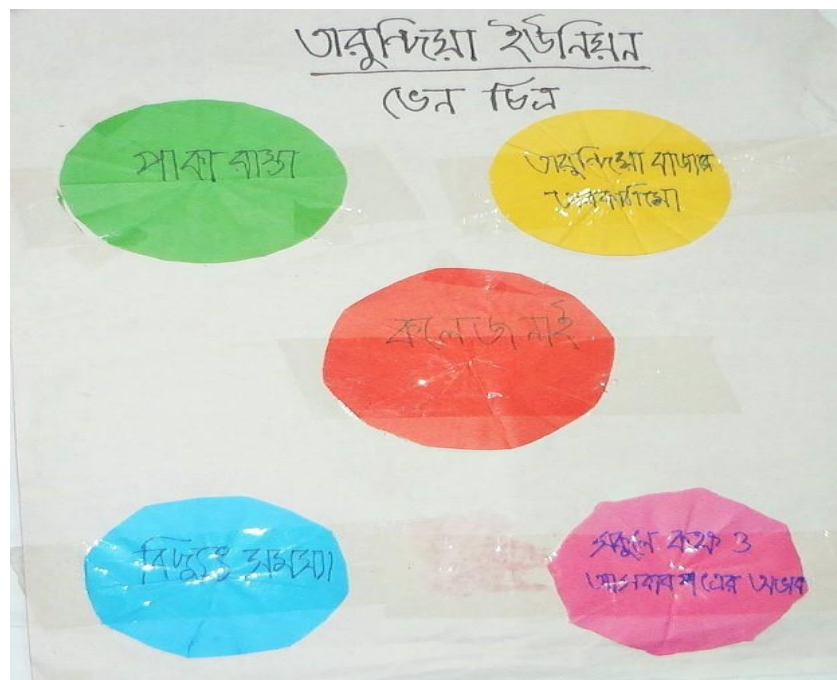 তারুন্দিয়া ইউনিয়ন
ভেন চিত্র
পাকা রাস্তা
তারুন্দিয়া বাজার
অবকাঠামো
কলেজ নাই
বিদ্যুৎ সমস্যা
স্কুলে কক্ষ ও
আসবাবপত্রের অভাব